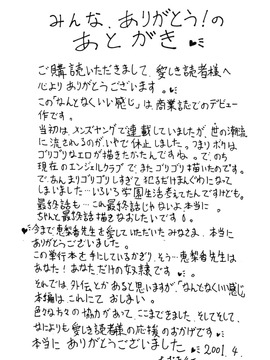 みんな、ありがとう!の
あとがき
ご購読いただきまして、愛しき読者様へ
心よりありがとうございます。
この「なんとなくいい感じ」は商業誌でのデビュー
作です。
当初は、メンズヤングで連載していましたが、世の潮流
に流されるのがいやで休止しました。つまりボクは
ゴリゴリなエロが描きたかたんですね。で、のち
現在のエンジェルクラブで、またゴリゴリ描いたのです。
で、あんまりゴリゴリしすぎて犯るだけまんぐわになって
しまいました…いろいろ学園生活考えてたんですけども。
最終話も…これ最終話じゃないよ本当に。
ちゃんと最終話描きなおしたいです。
今まで恵梨香先生を愛していただいたみなさま、本当に
ありがとうございました。
この単行本を手にしているかぎり、そう…恵梨香先生は
あなた!あなただけの奴隷です
それでは、外伝とかあると思いますが、「なんとなくいい感じ
本編は、これにておしまい。
色々な方々の協力があって、ここまできました、そしてそして、
なによりも愛しき読者様の応援のおかげです
本当にありがとうございました 2001.4